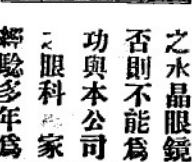 之水晶眼鏡
否則不能為
功與本公司
之眼科專家
經驗多年為